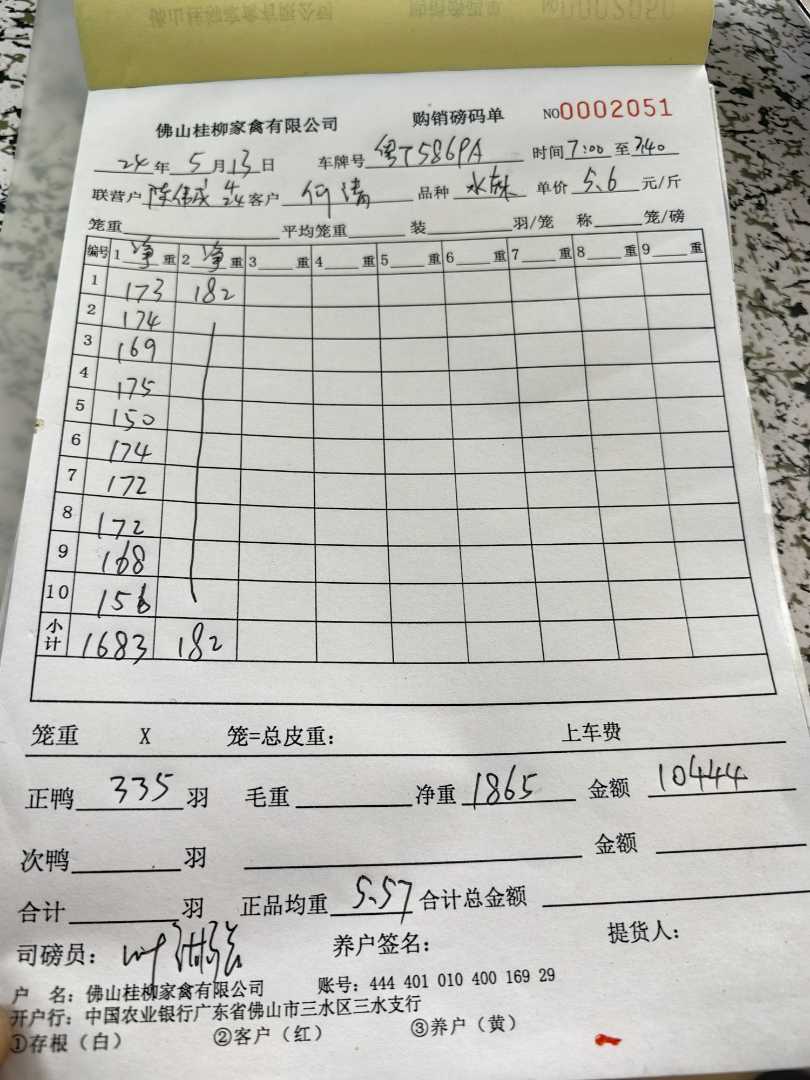 佛山桂柳家禽有限公司 购销磅码单 NO0002051
24年5月13日 车牌号 粤T5869A 时间7:00至7:40
联营户 陈伟成 4/24 客户 何清 品种 水麻 单价 5.6 元/斤
笼重 平均笼重 装 羽/笼 称 笼/磅
编号 1 净 重 2 净 重 3 重 4 重 5 重 6 重 7 重 8 重 9 重
1 173 182
2 174
3 169
4 175
5 150
6 174
7 172
8 172
9 168
10 156
小计 1683 182
笼重 X 笼=总皮重: 上车费
正鸭 335 羽 毛重 净重 1865 金额 10444
次鸭 羽 金额
合计 羽 正品均重 5.57 合计总金额
司磅员: 叶 养户签名: 提货人:
户 名: 佛山桂柳家禽有限公司 账号: 444 401 010 400 169 29
开户行: 中国农业银行广东省佛山市三水区三水支行
①存根(白) ②客户(红) ③养户(黄)